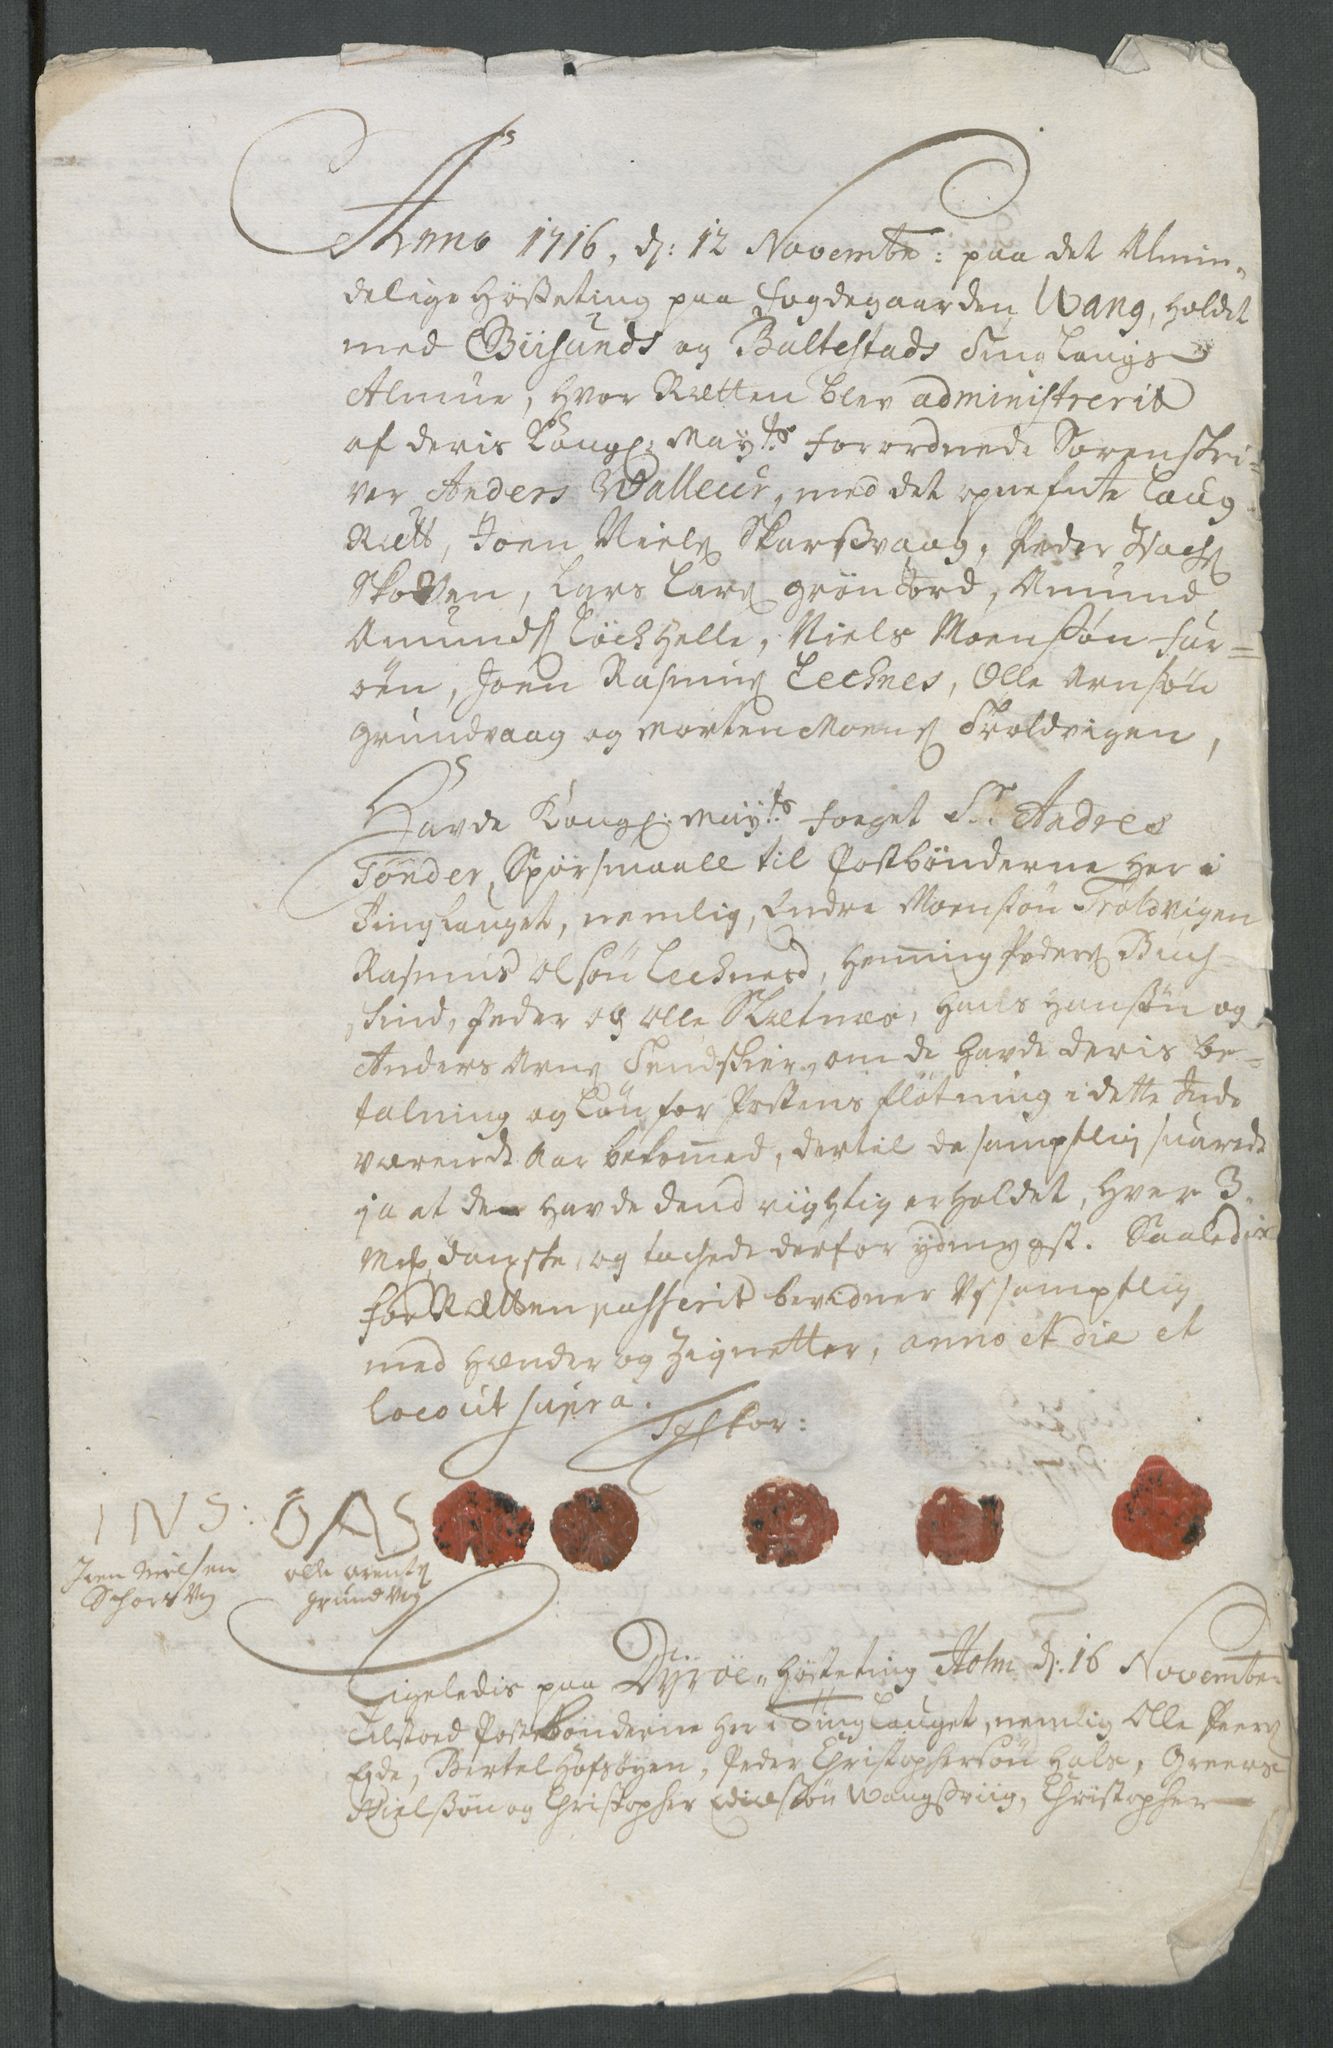 Anno 1716, d: 12 Novembr: paa det Almin-
delige Høsteting paa fogdegaarden Wang, holdet
med Giisunds og Baltestads Tinglaugs
Almue, hvor Rætten blev administrerit
af deris Kongl: May.ts forordnede Sorenskri-
ver Anders Walleur, med det opnefnte Laug
Rætt, Joen Niels Skarsvaag, Peder Isachs
Skoven, Lars Lars Grønjord, Amund
Amunds Løchhelle, Niels Moensøn Far-
øen, Joen Rasmus Lechnes, Olle Arnsøn
Grundvaag og Morten Moens Troldvigen,
Havde Kongl: May.ts foeget Sr. Andreas
Tønder, Spørsmaall til Postbønderne her i
Tinglauget, nemlig, Endre Moensøn Troldvigen
Rasmus Olsøn Lechnesd, Henning Peders Buch-
skind, Peder og Olle Skætnæs, Hans Hansøn og
Anders Arns Tendskier, om de havde deris be-
talning og Løn for Postens fløtning i dette Inde
værende Aar bekommed, dertil de samptlig suarede
ja at de havde dend rigtig erholdet, hver 3.
Mrk danske, og tachede derfor ydmygst. Saaledis
for Rætten passerit bevidner Vj samptlig
med Hænder og Zignetter, anno et die et
loco ut supra.
Testor:
INS: OAS
Joen Nielsen
Schorsvog
olle arents
grundvog
Ligeledis paa Dyrøe Høsteting Holm d: 16 November
tilstoed Postbønderne her i Tinglauget, nemlig Olle Peers
Egde, Bertel Hofsøyen, Peder Christophersøn Hals, Greers
Nielsøn og Christopher Ediassøn Wangsviig, Christopher